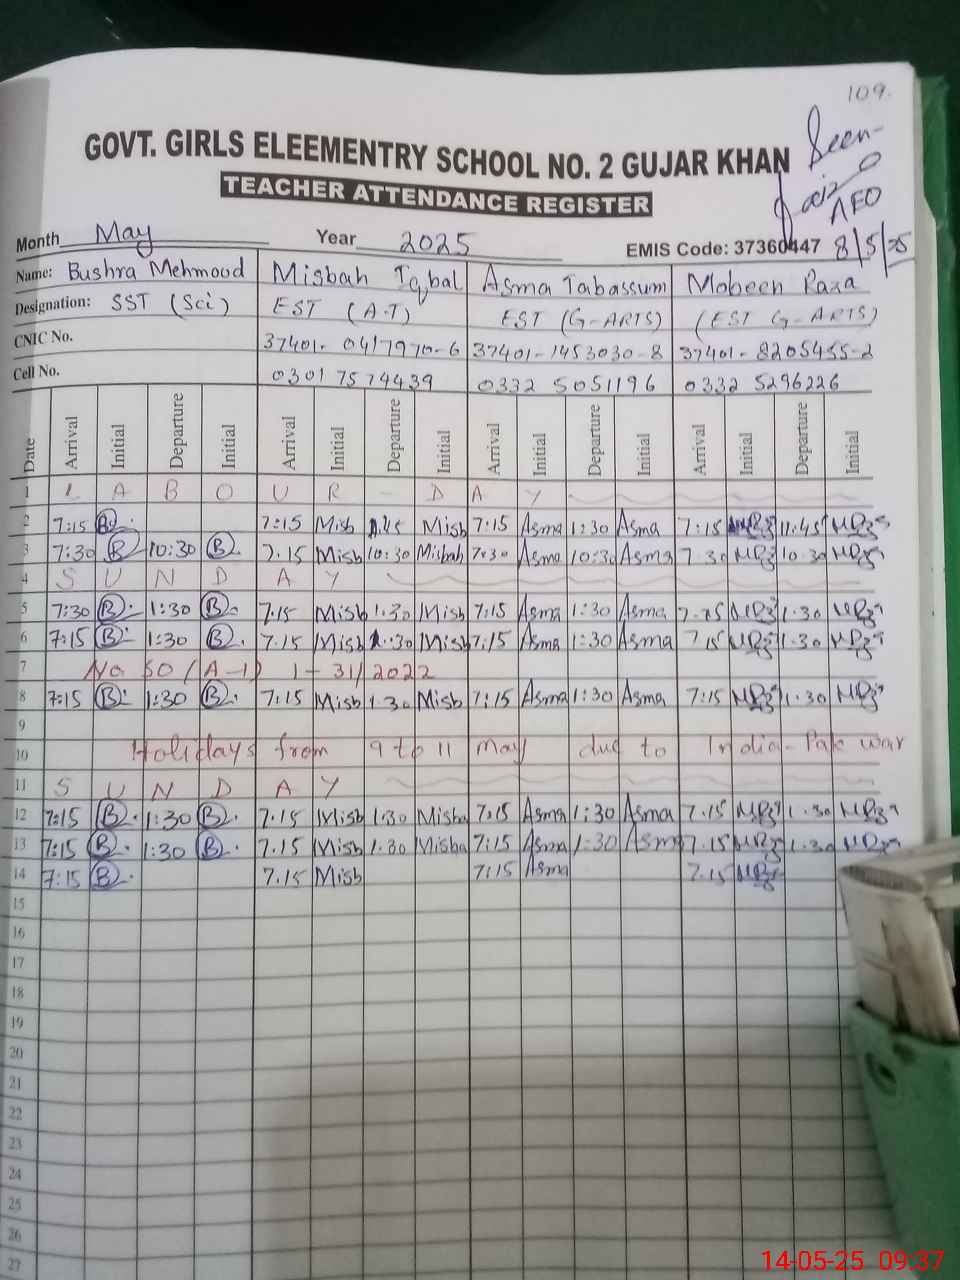 109.
GOVT. GIRLS ELEEMENTRY SCHOOL NO. 2 GUJAR KHAN
Seen
TEACHER ATTENDANCE REGISTER
AEO
Month May Year 2025 EMIS Code: 37360447 8/5/25
Name: Bushra Mehmood Misbah Iqbal Asma Tabassum Mobeen Raza
Designation: SST (Sci) EST (A.T) EST (G-ARTS) (EST G-ARTS)
CNIC No. 37401-0417970-6 37401-1453030-8 37401-8205455-2
Cell No. 0301 7574439 0332 5051196 0332 5296226
Date Arrival Initial Departure Initial Arrival Initial Departure Initial Arrival Initial Departure Initial Arrival Initial Departure Initial
1 L A B O U R - D A Y
2 7:15 B. 7:15 Misb Misb 7:15 Asma 1:30 Asma 7:15 11.45
3 7:30 B 10:30 B 7.15 Misb 10:30 Misbah 7:30 Asma 10:30 Asma 7.30 10.30
4 S U N D A Y
5 7:30 B. 1:30 B. 7.15 Misb 1.30 Misb 7:15 Asma 1:30 Asma 1.30
6 7:15 B. 1:30 B. 7.15 Misb Misb 7:15 Asma 1:30 Asma 7.15 1.30
7 No SO (A-1) 1-31/2022
8 7:15 B. 1:30 B. 7:15 Misb 1.30 Misb 7:15 Asma 1:30 Asma 7:15 1.30
9
10 Holidays from 9 to 11 may due to India-Pak war
11 S U N D A Y
12 7:15 B. 1:30 B. 7.15 Misb 1:30 Misba 7:15 Asma 1:30 Asma 7.15 1.30
13 7:15 B. 1:30 B. 7.15 Misb 1.30 Misba 7:15 Asma 1:30 Asma 7.15 1.30
14 7:15 B. 7.15 Misb 7:15 Asma 7.15
15
16
17
18
19
20
21
22
23
24
25
26
27
14-05-25 09:37